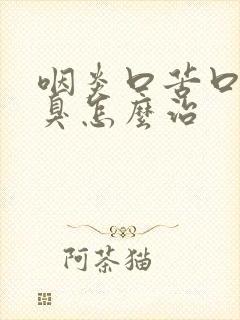 咽炎口苦口
臭怎麼治
阿茶猫